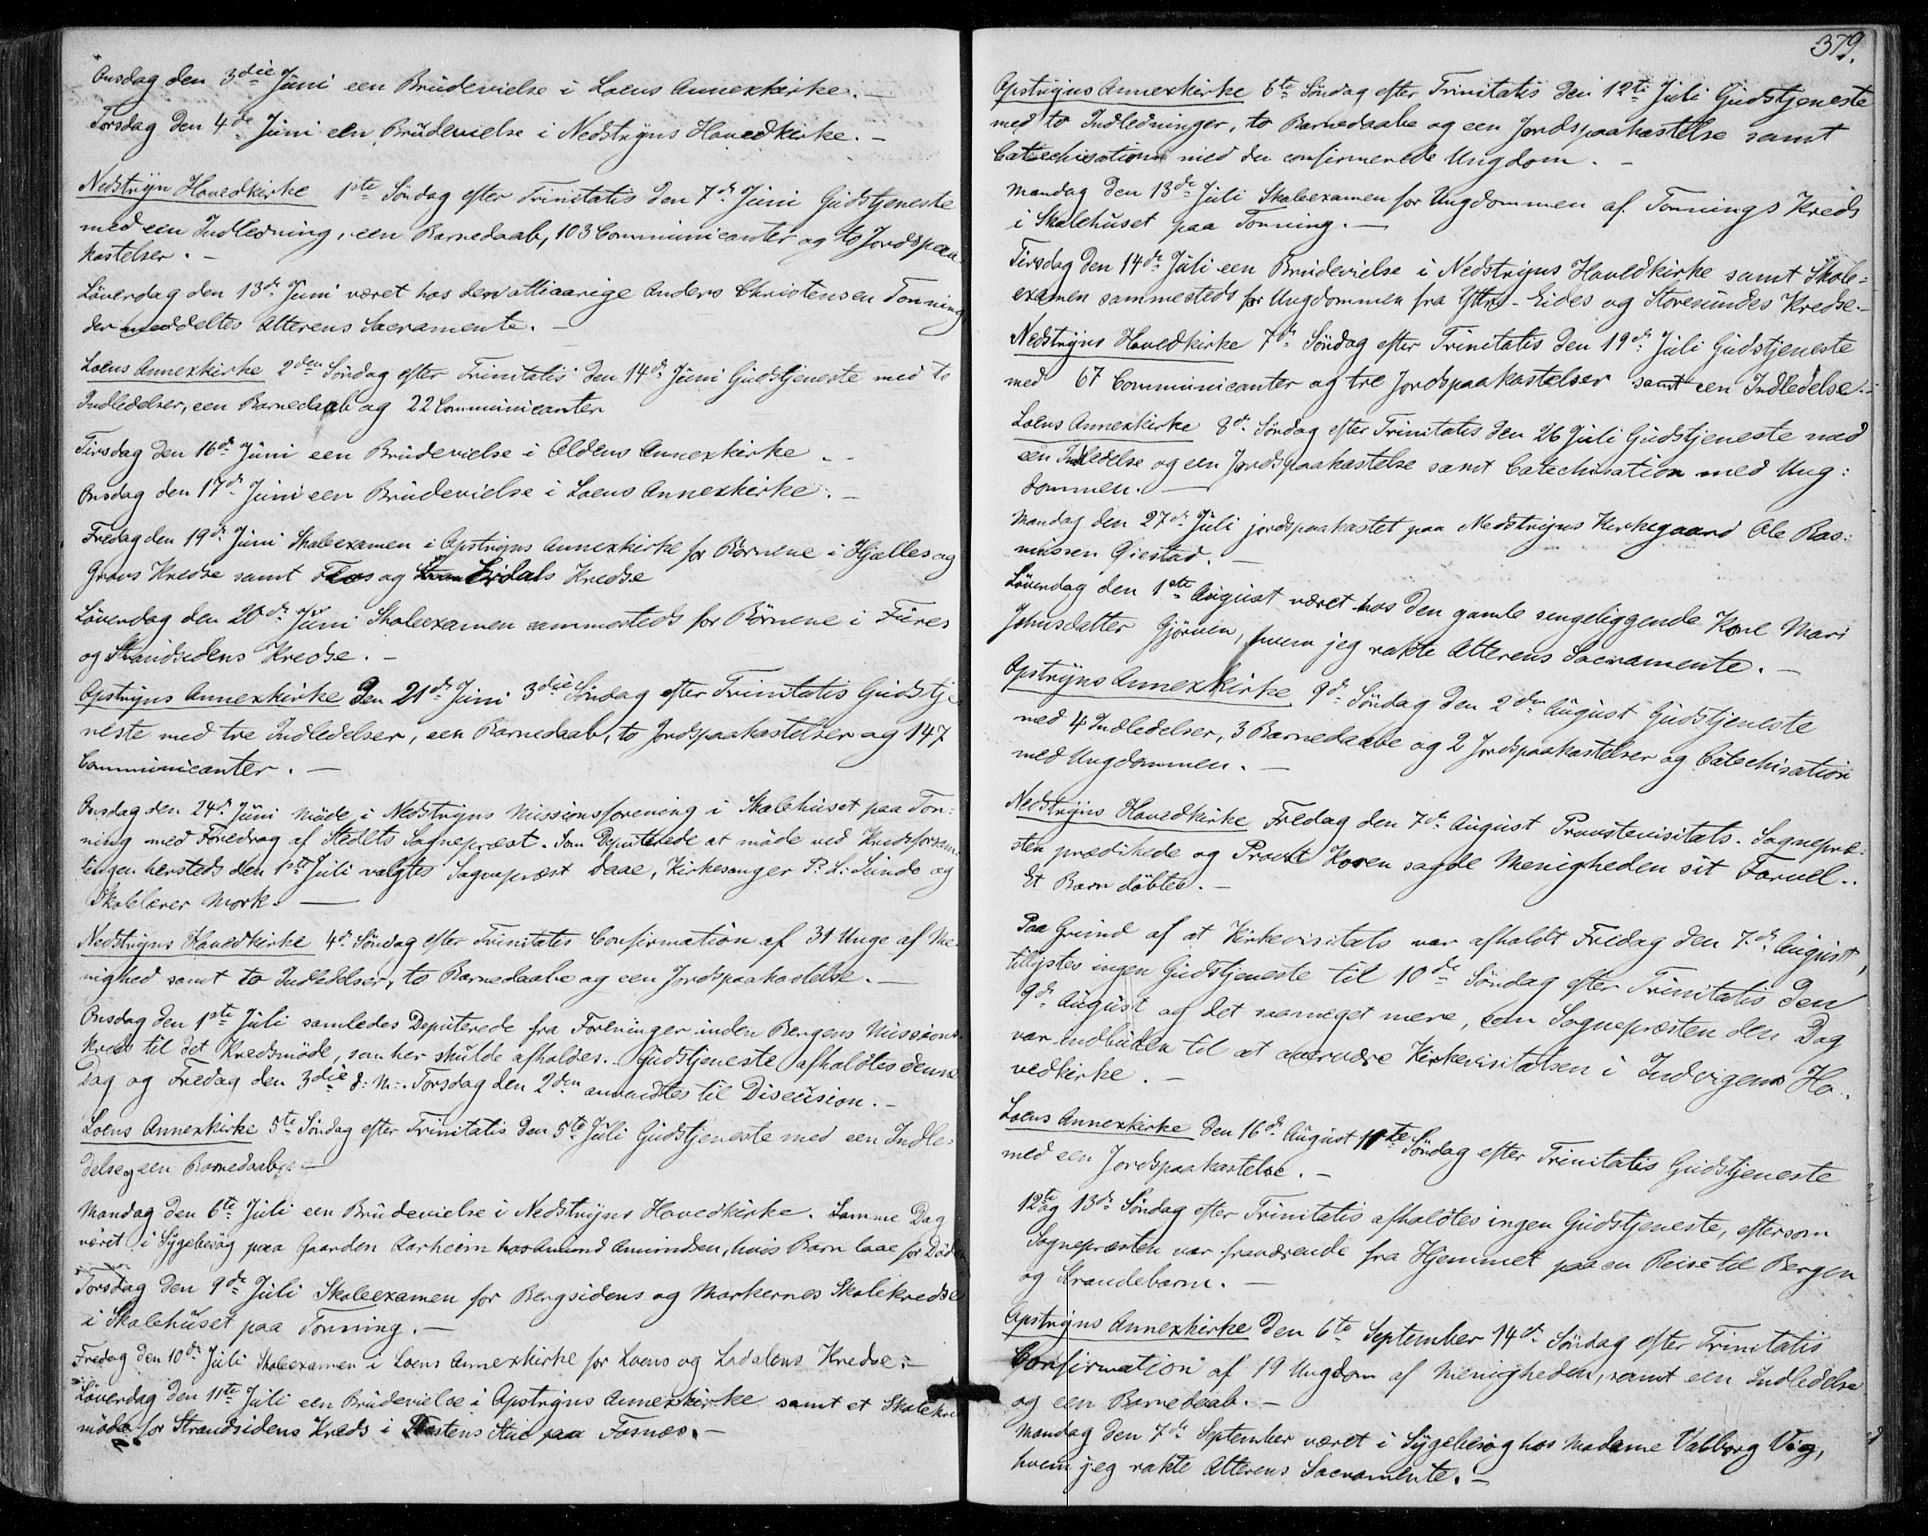 Onsdag den 3die Juni een Brudevielse i Loens Annexkirke. —
Torsdag den 4de Juni een Brudevielse i Nedstryns Hovedkirke. —
Nedstryn Hovedkirke 1ste Söndag efter Trinitatis den 7de Juni Gudstjeneste
med een Indledning, een Barnedaab, 103 Communicanter og to Jordspaa-
kastelser. —
Löverdag den 13de Juni været hos den ottiaarige Anders Christensen Tonning
der meddeltes Alterens Sacramente. —
Loens Annexkirke 2den Söndag efter Trinitatis den 14de Juni Gudstjeneste med to
Indledelser, een Barnedaab og 22 Communicanter
Tirsdag den 16de Juni een Brudevielse i Oldens Annexkirke. —
Onsdag den 17de Juni een Brudevielse i Loens Annexkirke. —
Fredag den 19de Juni Skoleexamen i Opstryns Annexkirke for Börnene i Hjelles og
Gravs Kredse samt Flos og Erdals Kredse
Löverdag den 20de Juni Skoleexamen sammesteds for Börnene i Fures
og Strandsedens Kredse. —
Opstryns Annexkirke den 21de Juni 3die Söndag efter Trinitatis Gudstje-
neste med tre Indledelser, een Barnedaab, to Jordspaakastelser og 147
Communicanter. —
Onsdag den 24de Juni Möde i Nedstryns Missionsforening i Skolehuset paa Ton-
ning med Foredrag af Stedets Sognepræst. Som Deputerede at möde ved Kredsforsam-
lingen hersteds den 1ste Juli valgtes Sognepræst Daae, Kirkesanger P. L. Sunde og
Skolelærer Mork. —
Nedstryns Hovedkirke 4de Söndag efter Trinitatis Confirmation af 31 Unge af Me-
nighed samt to Indledelser, to Barnedaabe og een Jordspaakastelse. —
Onsdag den 1ste Juli samledes Deputerede fra Foreninger inden Bergens Missions-
kreds til det Kredsmöde, som her skulde afholdes. Gudstjeneste afholdtes denne
Dag og Fredag den 3die d: M:. Torsdag den 2den anvendtes til Discusion. —
Loens Annexkirke 5te Söndag efter Trinitatis den 5te Juli Gudstjeneste med een Indle-
delse og een Barnedaab. —
Mandag den 6te Juli een Brudevielse i Nedstryns Hovedkirke. Samme Dag
været i Sygebesög paa Gaarden Aarheim hos Amund Amundsen, hvis Barn laae for Döden
Torsdag den 9de Juli Skoleexamen for Bergsidens og Markernes Skolekredse
i Skolehuset paa Tonning. —
Fredag den 10de Juli Skoleexamen i Loens Annexkirke for Loens og Lodalens Kredse. —
Löverdag den 11te Juli een Brudevielse i Opstryns Annexkirke samt et Skolekreds
möde for Strandsidens Kreds i Stue paa Fosnæs. —
379.
Opstryns Annexkirke 6te Söndag efter Trinitatis den 12te Juli Gudstjeneste
med to Indledninger, to Barnedaabe og een Jordspaakastelse samt
Catechisation med den confirmerede Ungdom. —
Mandag den 13de Juli Skoleexamen for Ungdommen af Tonnings Kreds
i Skolehuset paa Tonning. —
Tirsdag den 14de Juli een Brudevielse i Nedstryns Hovedkirke samt Skole-
examen sammesteds for Ungdommen fra Ytre-Eides og Storesundes Kredse. —
Nedstryns Hovedkirke 7de Söndag efter Trinitatis den 19de Juli Gudstjeneste
med 67 Communicanter og tre Jordspaakastelser samt een Indledelse. —
Loens Annexkirke 8de Söndag efter Trinitatis den 26 Juli Gudstjeneste med
een Indledelse og een Jordspaakastelse samt Catechisation med Ung:
dommen. —
Mandag den 27de Juli jordspaakastet paa Nedstryns Kirkegaard Ole Ras:
mussen Öiestad. —
Löverdag den 1ste August været hos den gamle sengeliggende Kone Mari
Johnsdatter Gjörven, hvem jeg rakte Alterens Sacramente. —
Opstryns Annexkirke 9de Söndag den 2den August Gudstjeneste
med 4 Indledelser, 3 Barnedaabe og 2 Jordspaakastelser og Catechisation
med Ungdommen. —
Nedstryns Hovedkirke Fredag den 7de August Provstevisitats. Sognepræ-
sten prædikede og Provst Koren sagde Menigheden sit Farvel.
Et Barn döbtes. —
Paa Grund af at Kirkevisitats var afholdt Fredag den 7de August,
tillystes ingen Gudstjeneste til 10de Söndag efter Trinitatis den
9de August og det saameget mere, som Sognepræsten den Dag
var indbuden til at overvære Kirkevisitatsen i Indvigens Ho-
vedkirke. —
Loens Annexkirke den 16de August 11te Söndag efter Trinitatis Gudstjeneste
med een Jordspaakastelse. —
12te og 13de Söndag efter Trinitatis afholdtes ingen Gudstjeneste, eftersom
Sognepræsten var fraværende fra Hjemmet paa en Reise til Bergen
og Strandebarm. —
Opstryns Annexkirke den 6te September 14de Söndag efter Trinitatis
Confirmation af 19 Ungdom af Menigheden, samt een Indledelse
og een Barnedaab. —
Mandag den 7de September været i Sygebesög hos Madame Valborg Vig,
hvem jeg rakte Alterens Sacramente. —